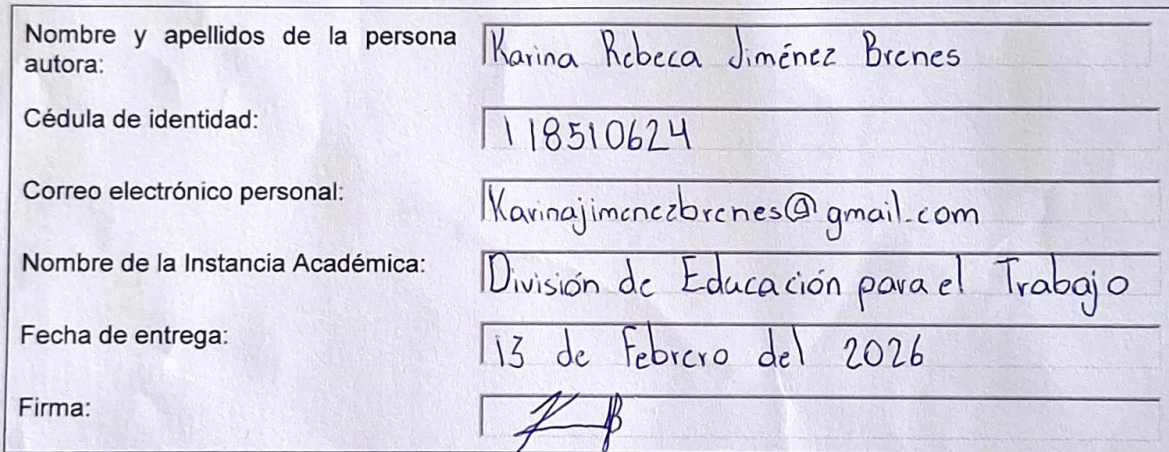 Nombre y apellidos de la persona autora: Karina Rebeca Jiménez Brenes
Cédula de identidad: 118510624
Correo electrónico personal: Karinajimenezbrenes@gmail.com
Nombre de la Instancia Académica: División de Educación para el Trabajo
Fecha de entrega: 13 de Febrero del 2026
Firma: